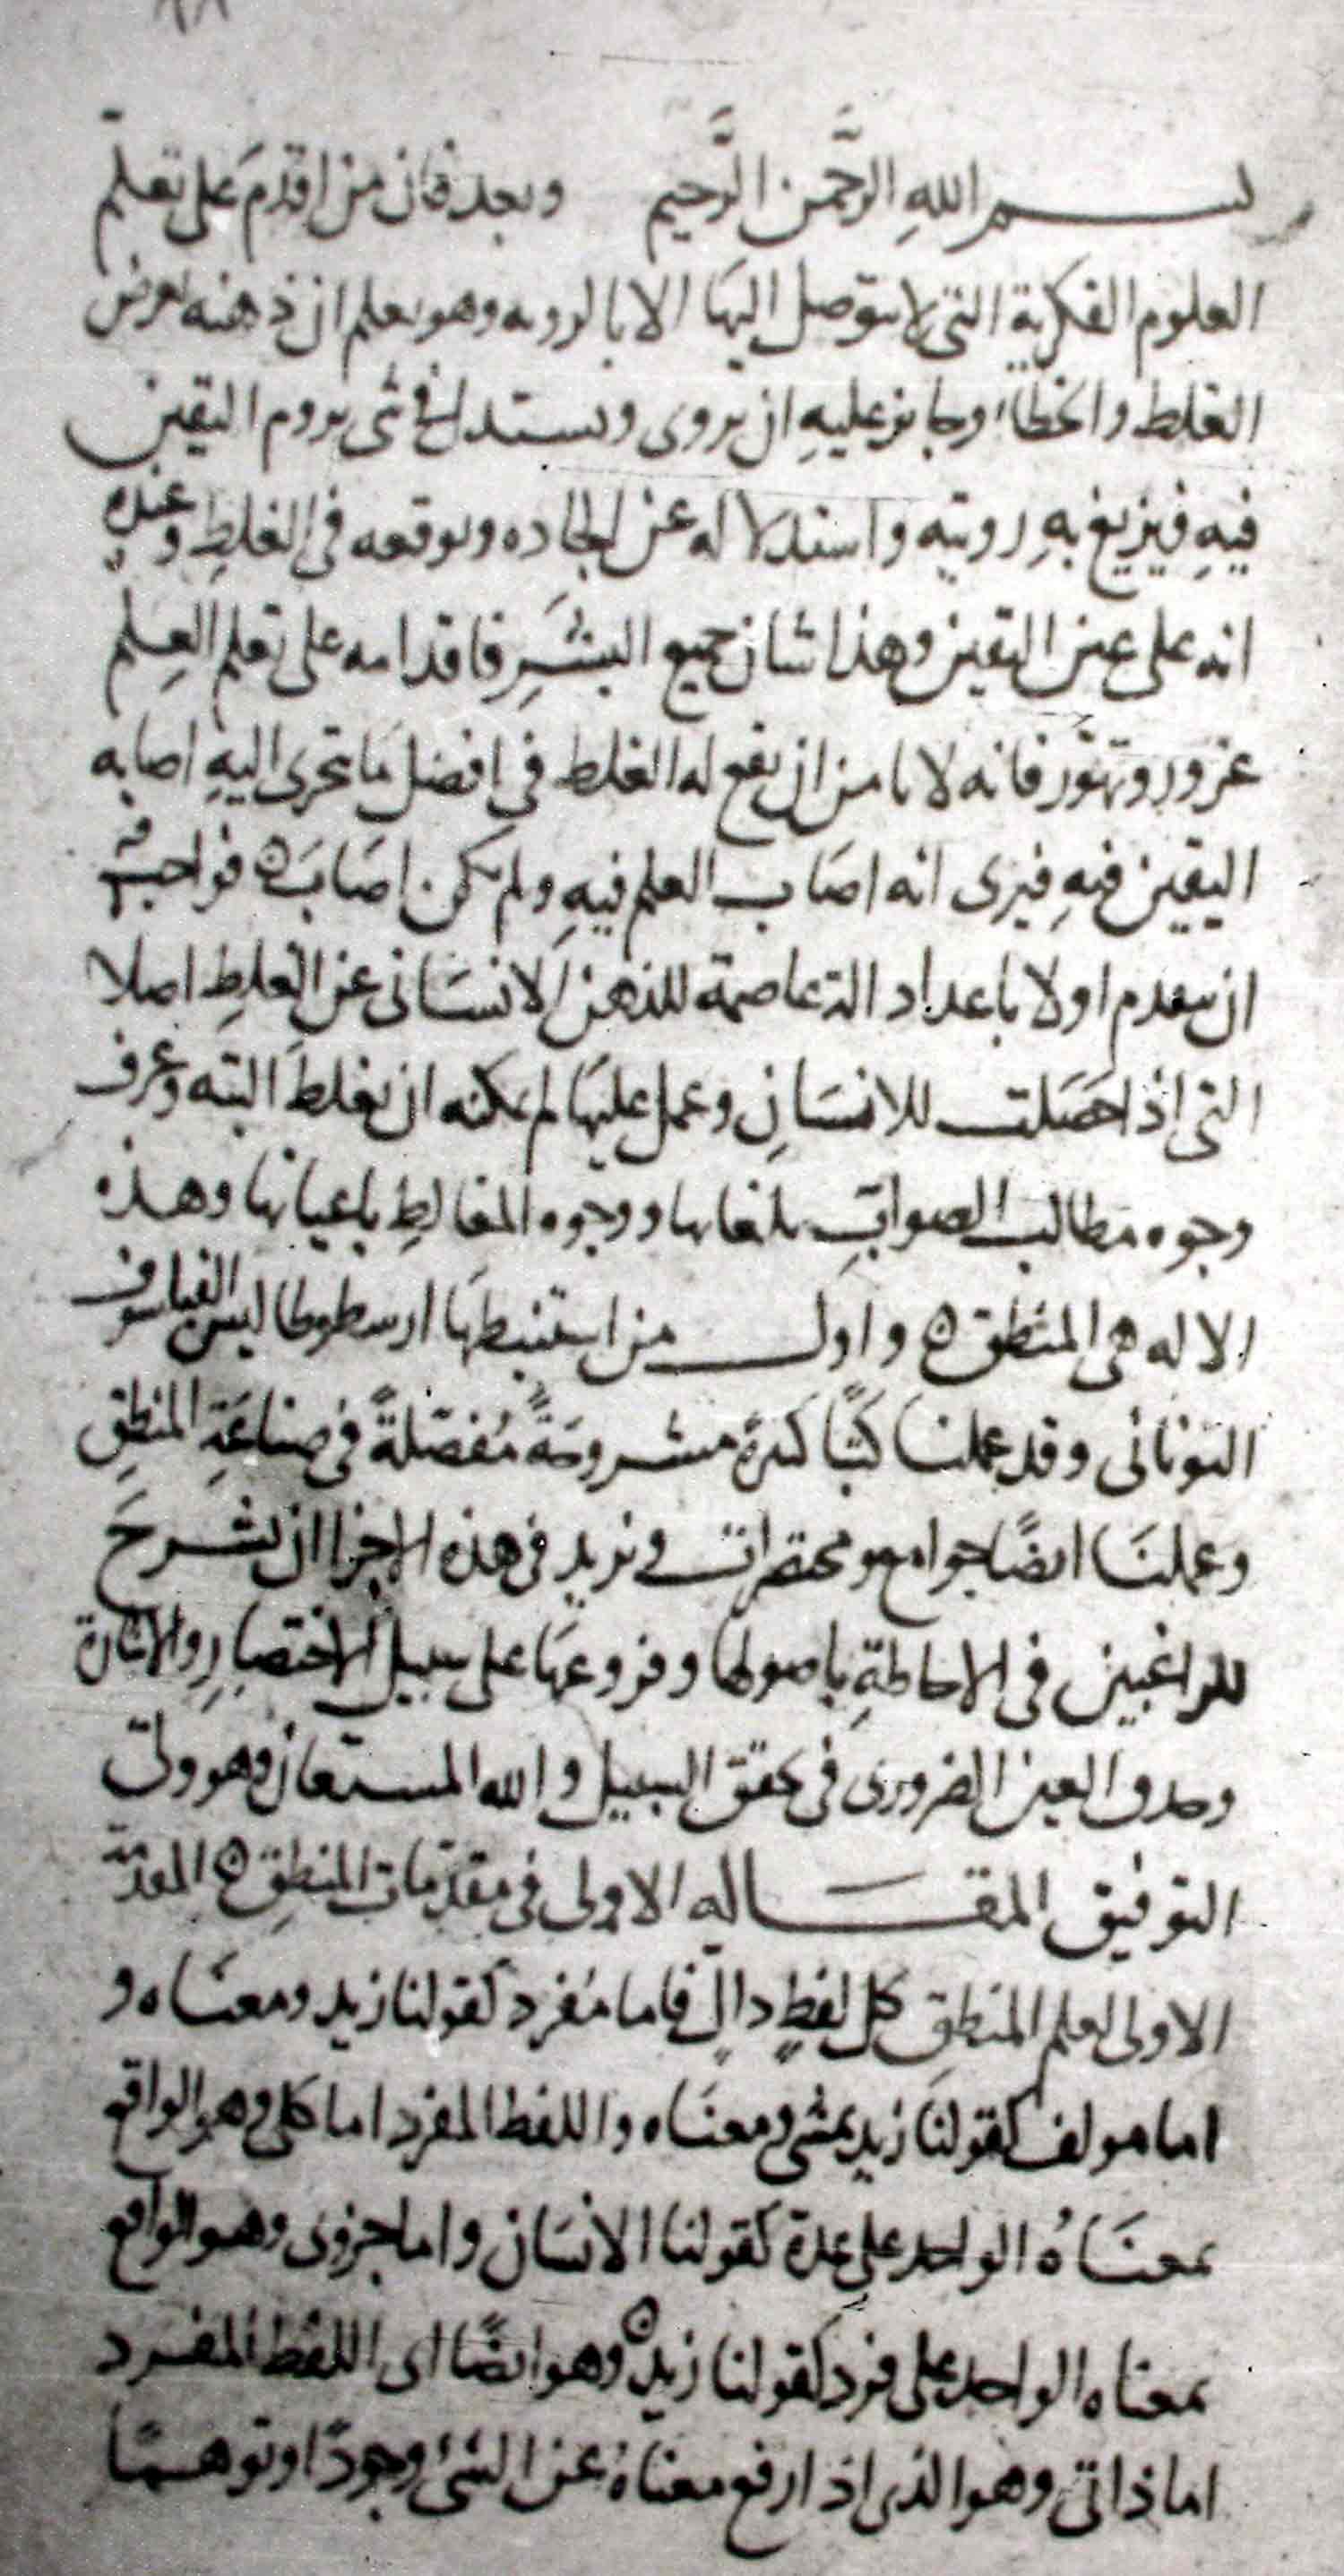 بسم اللهِ الرَّحمن الرَّحيم وبعد فان من اقدَمَ على تعلم
العلوم الفكرية التى لا يتوصل اليهَا الا بالرويه وهو يعلم ان ذهنه يعرض
الغلط والخطاء وجايز عليهِ ان يروى ويستدل فى شى يروم اليقين
فيهِ فيزيغ بهِ رويته واستدلاله عن الجاده ويوقعه فى الغلطِ وعنده
انه على عين اليقين وهذا شان جميع البشَرِ فاقدامه على تعلم العِلم
غرور وتهوّر فانه لا يامن ان يقع له الغلط فى افضل مَا يتحرى اليهِ اصابه
اليقين فيهِ فيرى انه اصَاب العلم فيهِ ولم يكن اصَابَه فواجب
ان يتقدم اولا باعداد الة عاصمة للذهن الانسَانى عن الغلطِ اصلا
التى اذا حصَلت للانسَانِ وعمل عليهَا لم يمكنه ان يغلط البته وعرف
وجوه مطالب الصوابِ ووجوه المغالطِ باعيانها وهذه
الاله هى المنطق ه واول من استنبطهَا ارسطوطاليس الفيلسوف
اليونانى وقد عملنا كتبًا كثيرة مشروحَةً مُفصّلةً فى صناعَةِ المنطقِ
وعملنَا ايضًا جوامع ومختصرات ونريد فى هذه الاجزا ان نشرحَ
للراغبين فى الاحاطةِ باصولها وفروعهَا على سبيل الاختصارِ والاشارة
الضرورى فى تحقق السبيل والله المستعان وهو ولى
التوفيق المقاله الاولى فى مقدّمات المنطقِ ه المقدّمة
الاولى لعلم المنطقِ كل لفظٍ دالٍّ فاما مُفرد كقولنا زيد ومعنَاه و
اما مولف كقولنَا زيد يمشى ومعنَاه واللفظ المفرد اما كلى وهو الواقع
بمعنَاهُ الواحد على عدة كقولنا الانسَان واما جزوى وهو الواقع
بمعناه الواحد على فرد كقولنا زيد ه وهو ايضًا اى اللفظ المفرد
اما ذاتى وهو الذى اذا رفع معناهُ عن الشئ وجودًا وتوهمًا